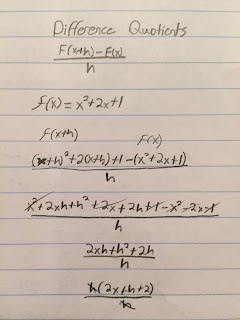 Difference Quotients
F(x+h)-F(x)
h
f(x)=x²+2x+1
f(x+h) F(x)
(x+h)²+2(x+h)+1-(x²+2x+1)
h
x²+2xh+h²+2x+2h+1-x²-2x-1
h
2xh+h²+2h
h
h(2x+h+2)
h